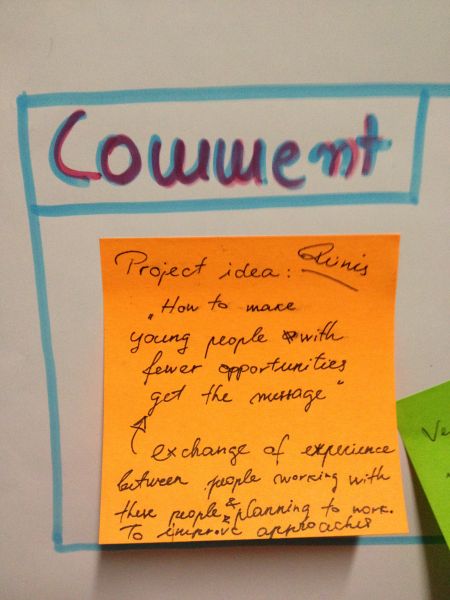 Comment
Project idea:
„How to make
young people with
fewer opportunities
get the message“
exchange of experience
between people working with
these people & planning to work.
To improve approaches
Ve